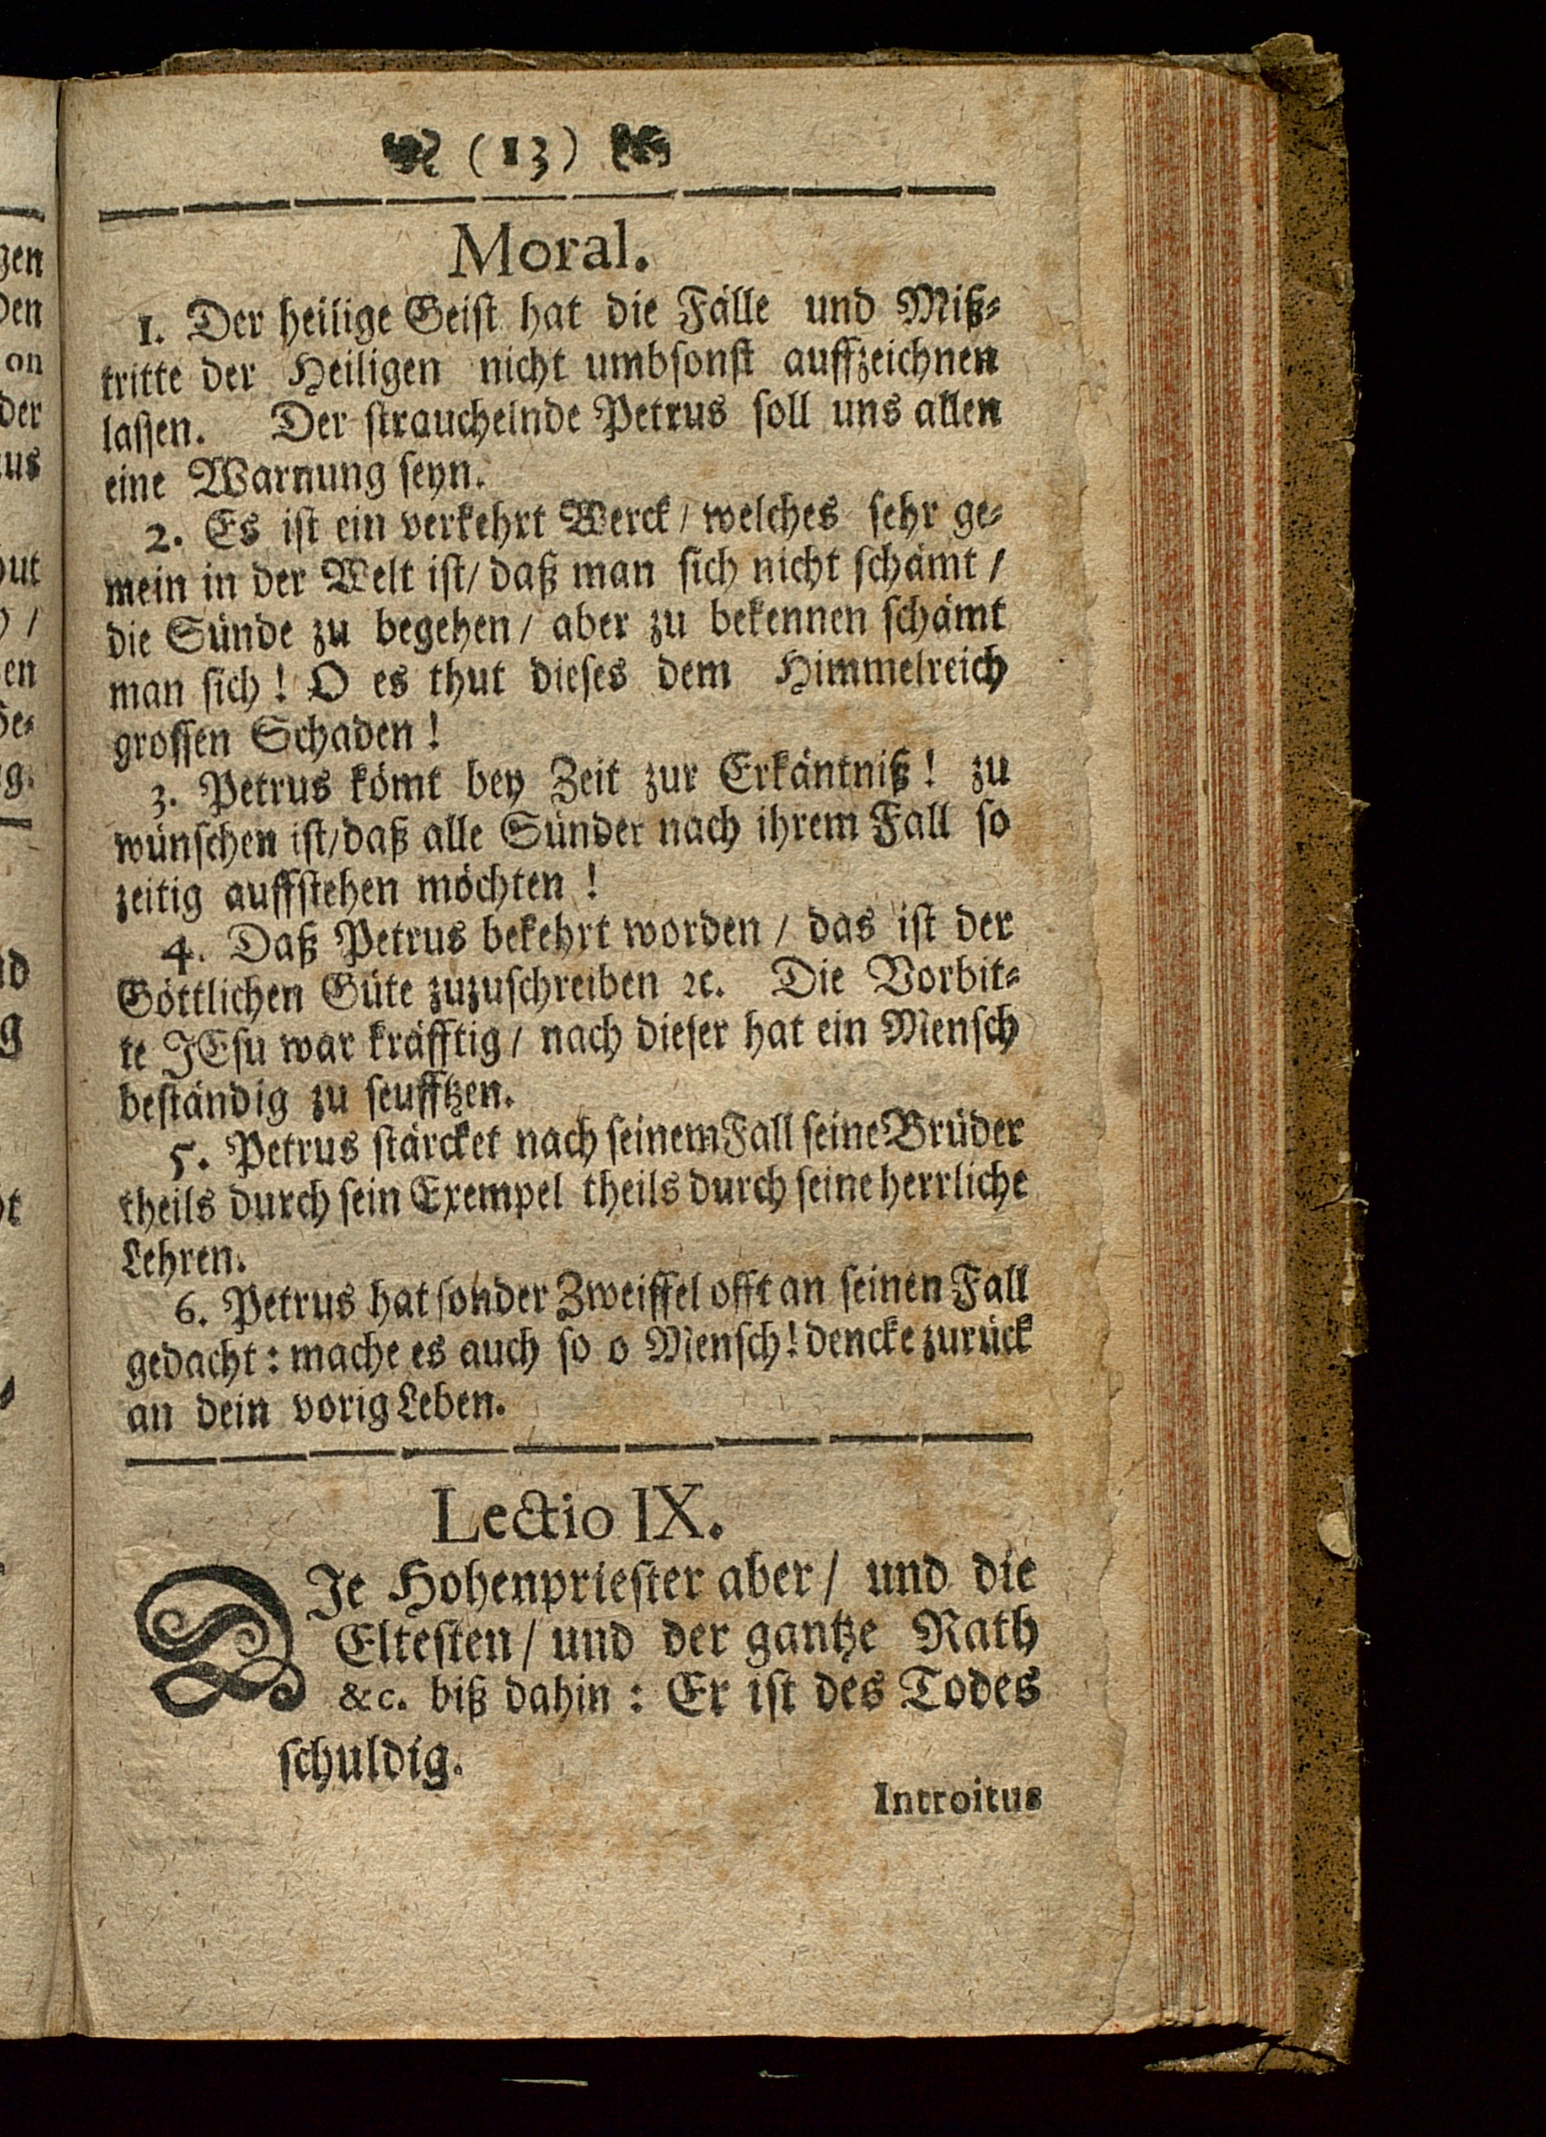 (13)
Moral.
1. Der heilige Geist hat die Fälle und Miß-
tritte der Heiligen nicht umbsonst auffzeichnen
lassen. Der strauchelnde Petrus soll uns allen
eine Warnung seyn.
2. Es ist ein verkehrt Werck / welches sehr ge-
mein in der Welt ist / daß man sich nicht schämt /
die Sünde zu begehen / aber zu bekennen schämt
man sich ! O es thut dieses dem Himmelreich
grossen Schaden !
3. Petrus kömt bey Zeit zur Erkäntniß ! zu
wünschen ist / daß alle Sünder nach ihrem Fall so
zeitig auffstehen möchten !
4. Daß Petrus bekehrt worden / das ist der
Göttlichen Güte zuzuschreiben ꝛc. Die Vorbit-
te JEsu war kräfftig / nach dieser hat ein Mensch
beständig zu seufftzen.
5. Petrus stärcket nach seinem Fall seine Brüder
theils durch sein Exempel theils durch seine herrliche
Lehren.
6. Petrus hat sonder Zweiffel offt an seinen Fall
gedacht : mache es auch so o Mensch ! dencke zurück
an dein vorig Leben.
Lectio IX.
DIe Hohenpriester aber / und die
Eltesten / und der gantze Rath
&c. biß dahin : Er ist des Todes
schuldig.
Introitus